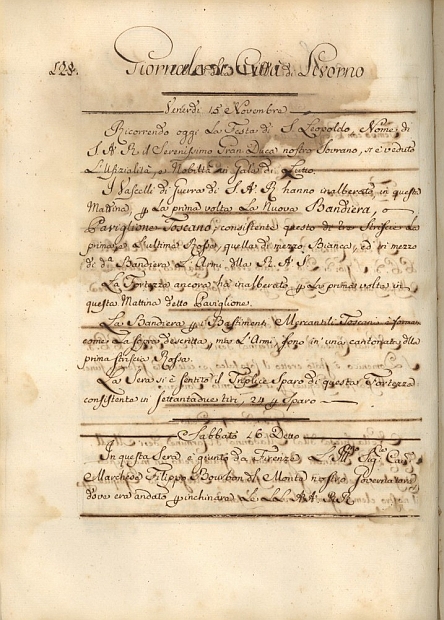 128. Giornale della Città di Livorno
Venerdì 15 Novembre
Ricorrendo oggi La Festa di S. Leopoldo, Nome di
S A R il Serenissimo Gran Duca nostro Sovrano, si è veduto
L'Ufizialità, e Nobiltà in Gala di
I Vascelli di Guerra di S. A. R. hanno inalberata in questa
Mattina, p La prima volta La Nuova Bandiera, o
Paviglione Toscano, consistente questo di tre Strisce La
prima, e L'ultima Rossa, quella di mezzo Bianca, ed in mezzo
di da Bandiera L'Armi della R. A. S.
La Fortezza ancora ha inalberato p La prima volta in
questa Mattina detto Paviglione.
La Bandiera p i Bastimenti Mercantili Toscani è forma
come La sopra descritta, ma L'Armi sono in una cantonata della
prima striscia Rossa.
La Sera si è sentito il Triplice Sparo di questa Fortezza
consistente in settantadue tiri 24 p Sparo
Sabbato 16 Detto
In questa Sera è giunto da Firenze L'
Marchese Filippo Bourbon del Monte nostro Governatore
dove era andato p inchinare Le L.L. AA. RR.